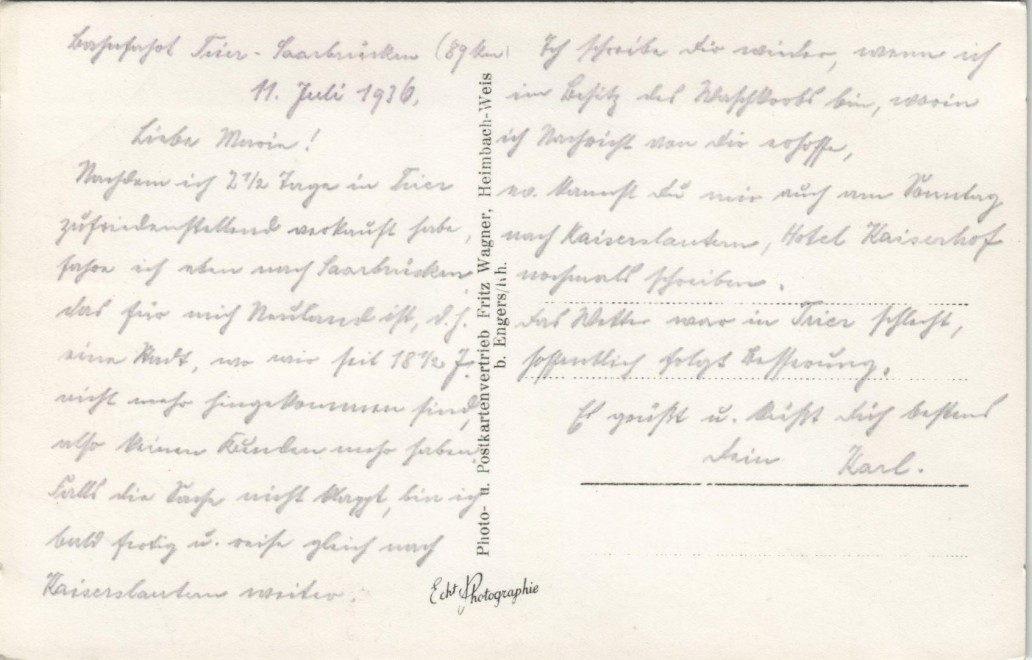 Bahnfahrt Trier - Saarbrücken (89 km)
11. Juli 1936.
Liebe Marie!
Nachdem ich 2 1/2 Tage in Trier
zufriedenstellend verkauft habe,
fahre ich eben nach Saarbrücken,
das für mich Neuland ist, d. h.
eine Stadt, wo wir seit 18 1/2 J.
nicht mehr hingekommen sind,
also keinen Kunden mehr haben.
Falls die Sache nicht klappt, bin ich
bald fertig u. reise gleich nach
Kaiserslautern weiter.
Photo- u. Postkartenvertrieb Fritz Wagner, Heimbach-Weis
b. Engers/Rh.
Echt Photographie
Ich schreibe Dir wieder, wenn ich
im Besitz des Waschkorbs bin, worin
ich Nachricht von Dir erhoffe,
ev. kannst Du mir auch am Sonntag
nach Kaiserslautern, Hotel Kaiserhof
nochmals schreiben.
Das Wetter war in Trier schlecht,
hoffentlich folgt Besserung.
Es grüßt u. küßt Dich bestens
Dein Karl.